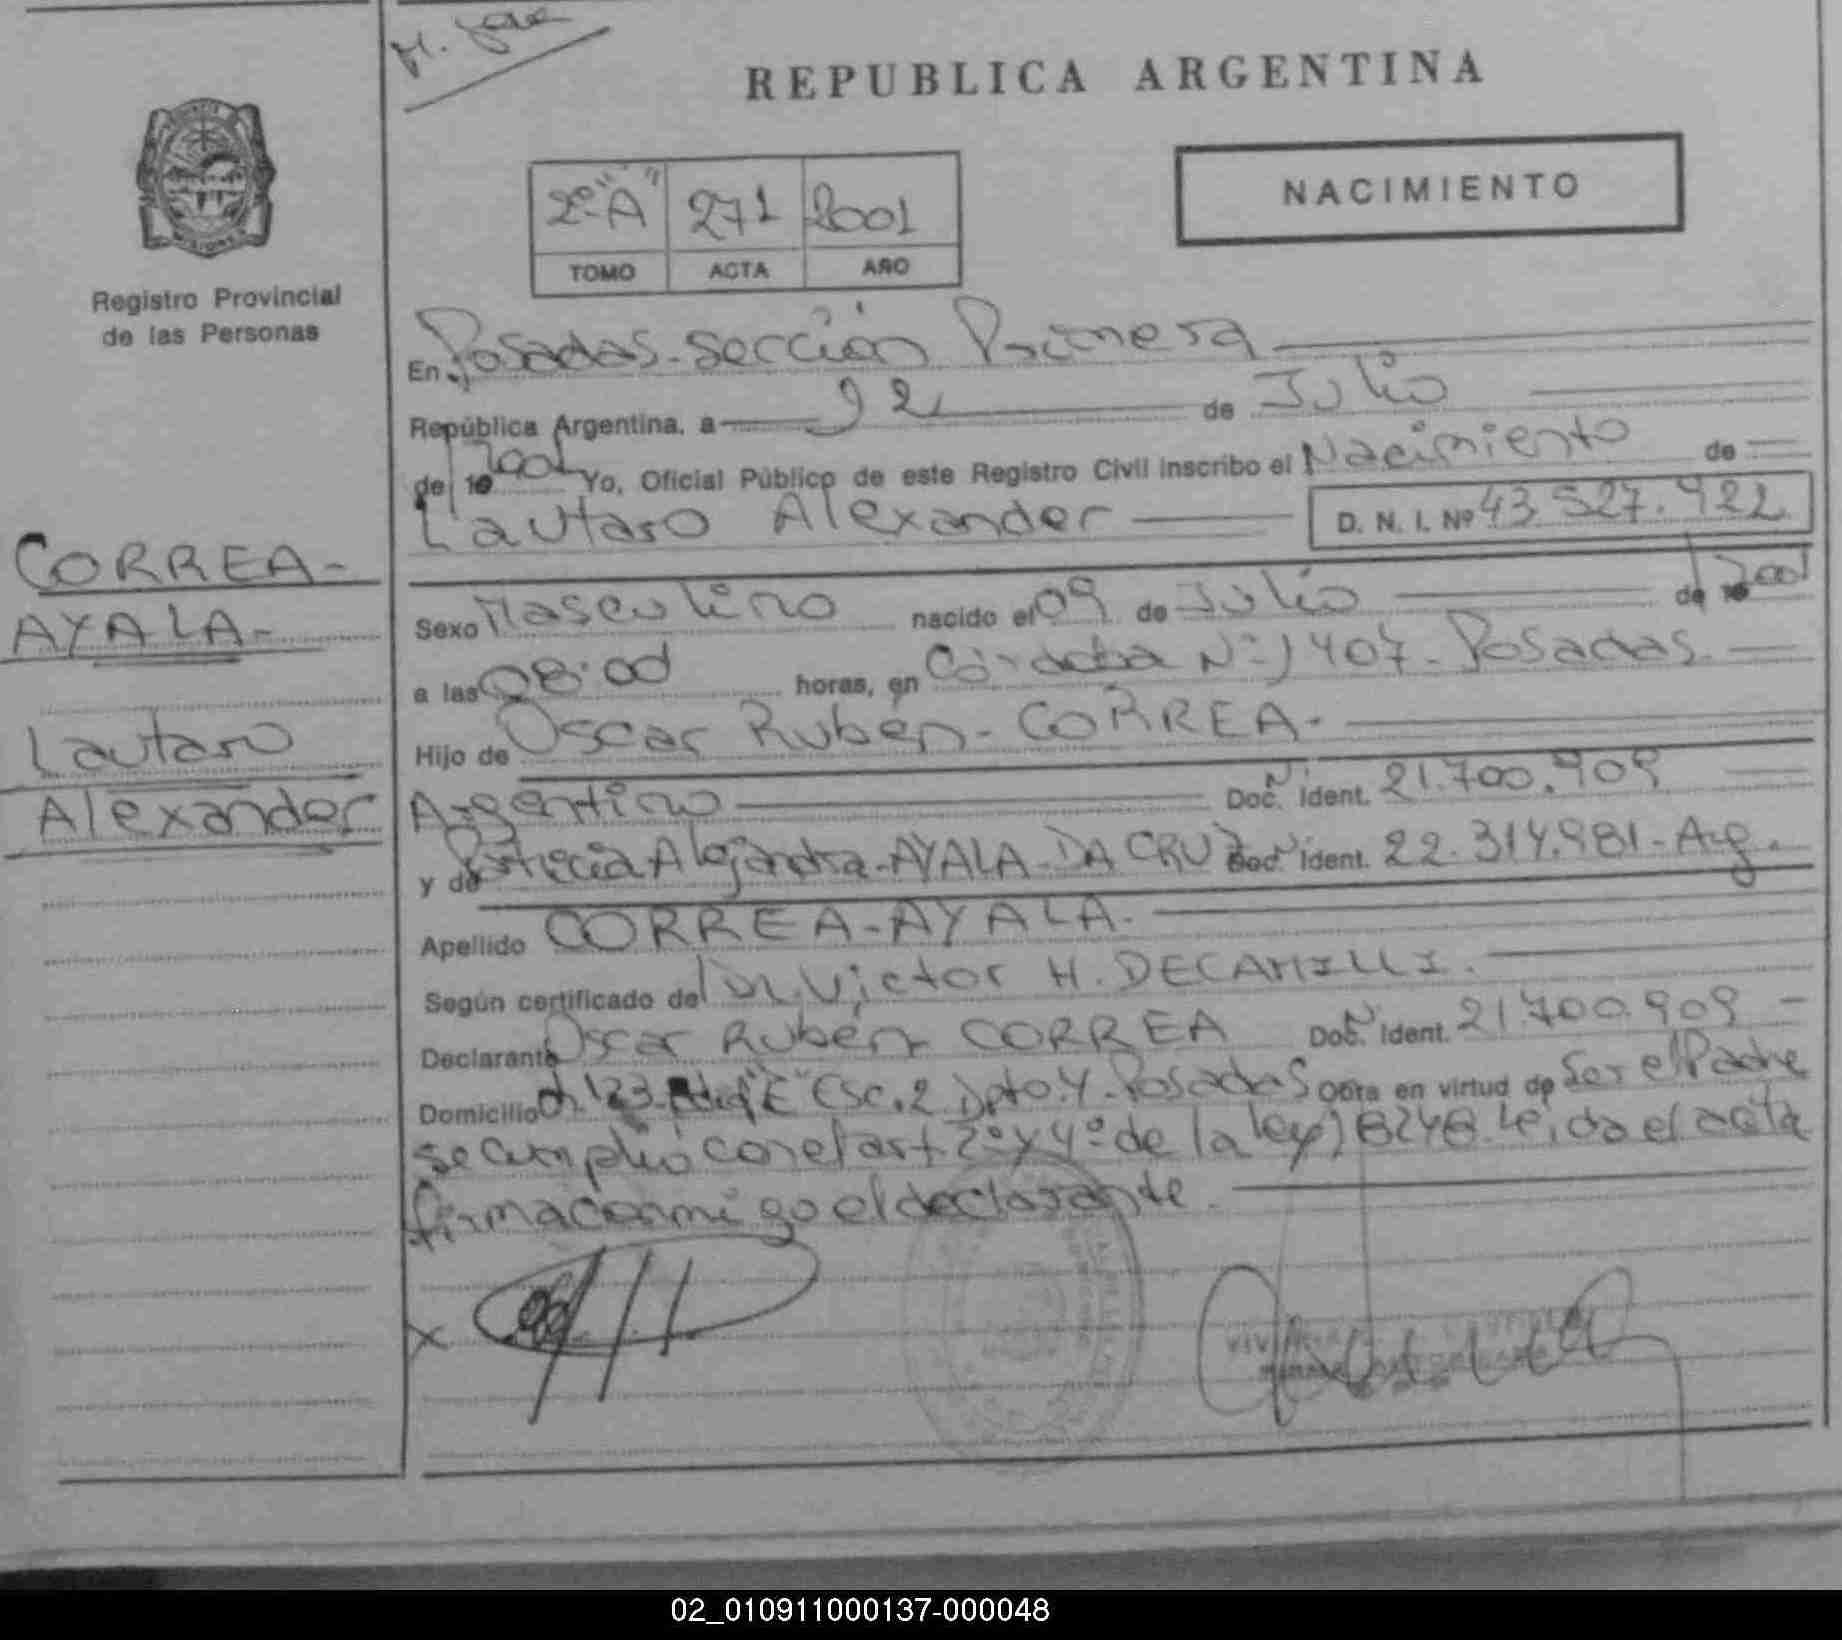 REPUBLICA ARGENTINA
NACIMIENTO
2º "A" 271 2001
TOMO ACTA AÑO
Registro Provincial
de las Personas
CORREA-
AYALA-
Lautaro
Alexander
En Posadas-sección Primera
República Argentina, a 12 de Julio
de 2001 Yo, Oficial Público de este Registro Civil inscribo el Nacimiento de
Lautaro Alexander D. N. I. Nº 43.527.922
Sexo Masculino nacido el 09 de Julio de 2001
a las 08:00 horas, en Córdoba Nº 1407-Posadas
Hijo de Oscar Rubén-CORREA-
Argentino Doc. Ident. 21.700.909
y de Patricia Alejandra-AYALA-DA CRUZ Doc. Ident. 22.314.981-Arg.
Apellido CORREA-AYALA-
Según certificado del Dr. Victor H. DECAMILLI.
Declarante Oscar Rubén CORREA Doc. Ident. 21.700.909-
Domicilio Ch. 123 "E" Esc. 2 Dpto. 4-Posadas Obra en virtud de Ser el Padre
se cumplió con el art 2º y 4º de la ley 18248. Leída el acta
firma conmigo el declarante.
X
02_010911000137-000048